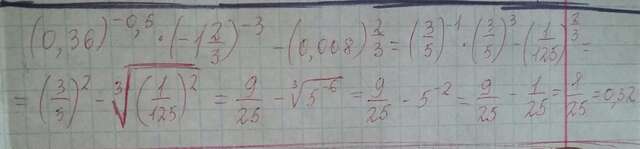 (0,36)^{-0,5} · (-1 2/3)^{-3} - (0,008)^{2/3} = (3/5)^{-1} · (3/5)^3 - (1/125)^{2/3} =
= (3/5)^2 - ∛((1/125)^2) = 9/25 - ∛(5^{-6}) = 9/25 - 5^{-2} = 9/25 - 1/25 = 8/25 = 0,32